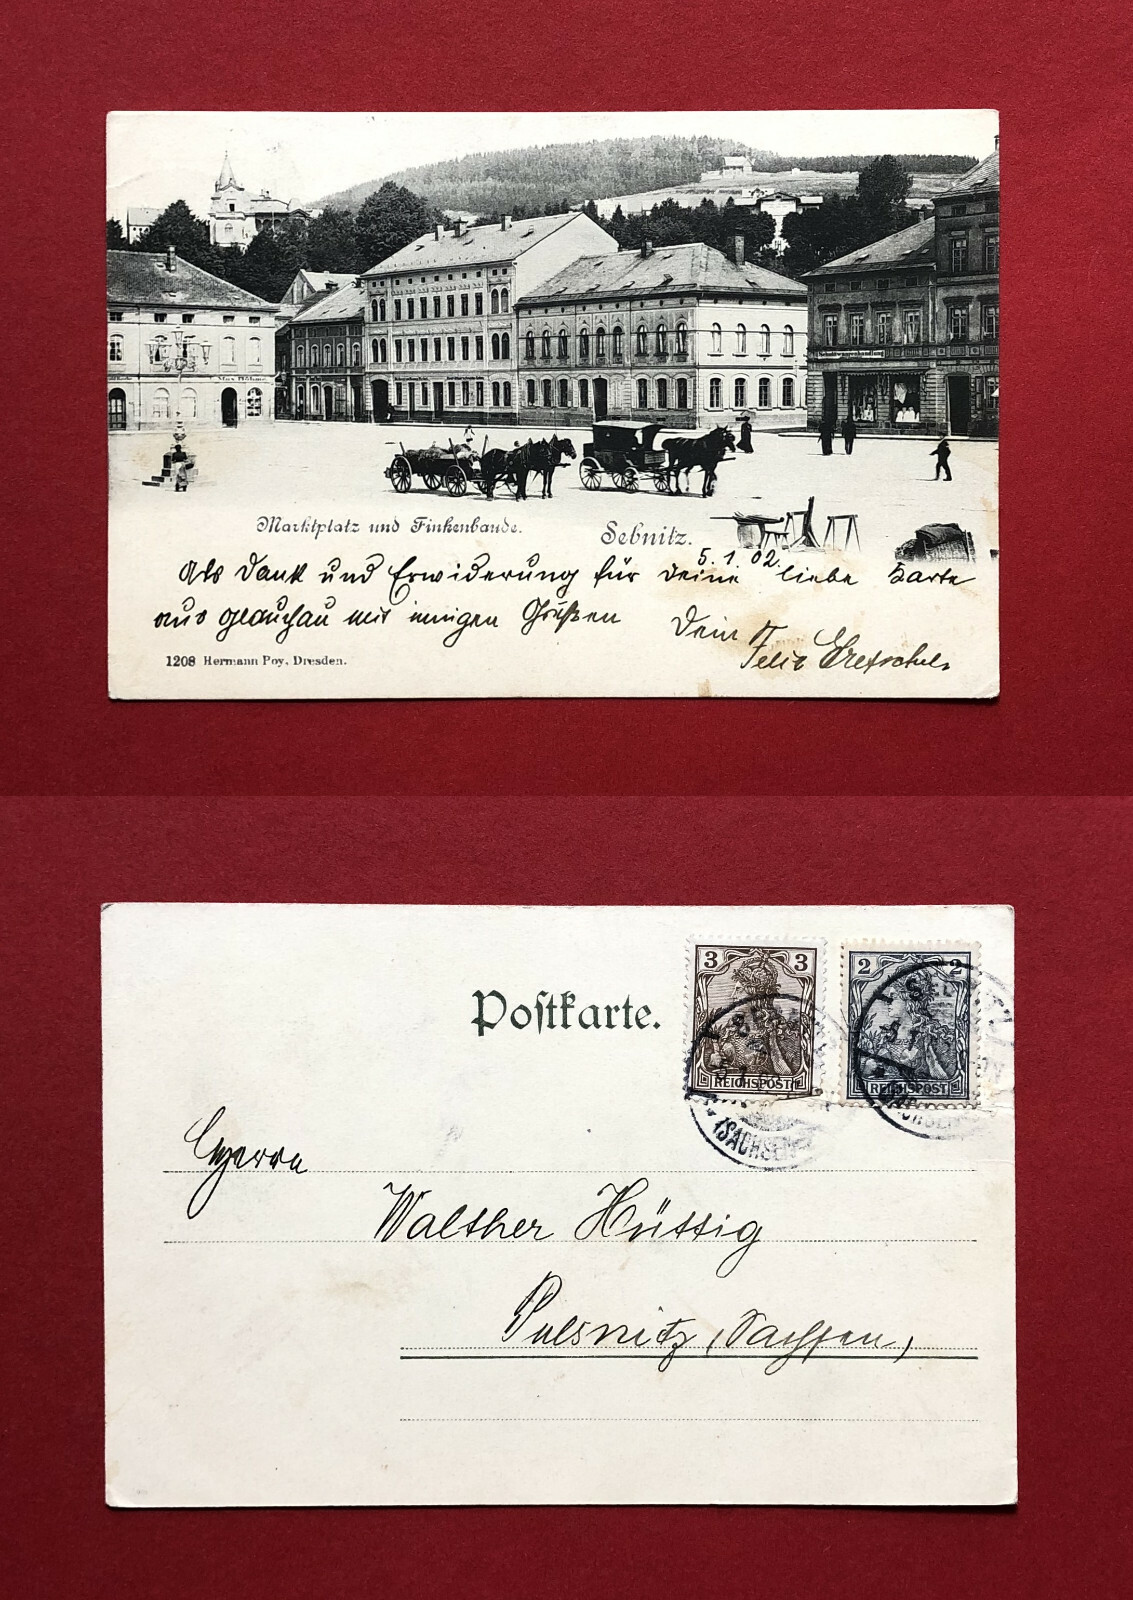 Max Böhme
Marktplatz und Finkenbaude.
Sebnitz.
5. 1. 02.
Als Dank und Erwiderung für Deine liebe Karte
aus Glauchau mit innigen Grüßen
Dein
Felix
1208 Hermann Poy, Dresden.
Postkarte.
3 3
REICHSPOST
2 2
REICHSPOST
SEBNITZ
(SACHSEN)
Herrn
Walther Hüttig
Pulsnitz, (Sachsen)